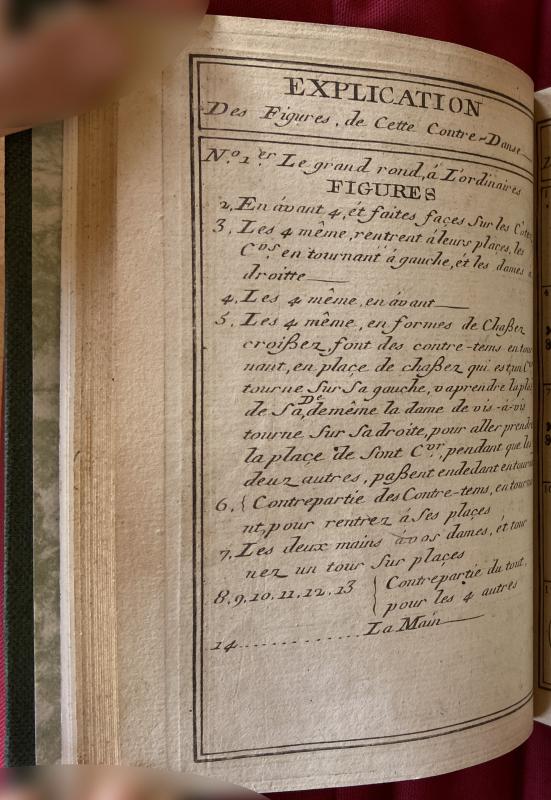 EXPLICATION
Des Figures, de Cette Contre-Danse
N.º 1.er Le grand rond, á L'ordinaires
FIGURES
2, En ávant 4, ét faites façes sur les
3, Les 4 même, rentrent á leurs plaçes, les
C.vrs en tournant á gauche, ét les dames
droitte
4, Les 4 même, en ávant
5, Les 4 même, en formes de Chaßez
croißez, font des contre-tems en tour
nant, en plaçe de chaßez qui est, un
tourne sur sa gauche, va prendre la
de Sa De, de même la dame de vis-á-vis
tourne sur sa droite, pour aller prendre
la plaçe de Sont C.vr, pendant que les
deux autres, paßent en dedant en
6, { Contrepartie des Contre-tems, en
nt, pour rentrez á Ses plaçes
7, Les deux mains á vos dames, et tour
nez un tour Sur plaçes
8, 9, 10, 11, 12, 13 { Contrepartie du tout,
pour les 4 autres
14 ............ La Main